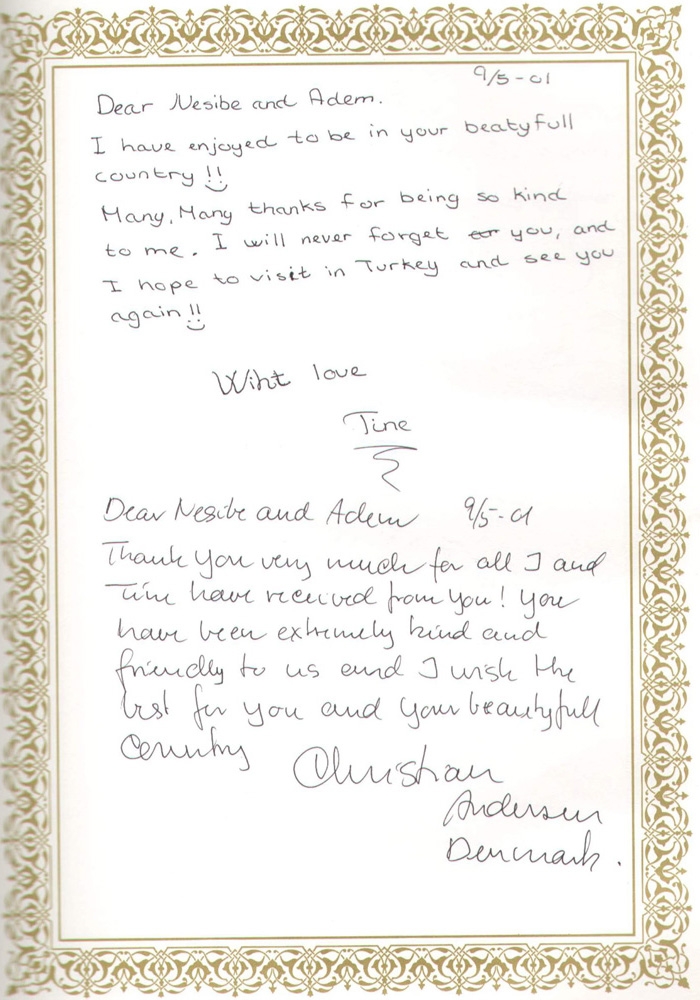 9/5-01
Dear Nesibe and Adem.
I have enjoyed to be in your beatyfull
country !!
Many, Many thanks for being so kind
to me. I will never forget you, and
I hope to visit in Turkey and see you
again !!
Wiht love
Tine
Dear Nesibe and Adem 9/5-01
Thank you very much for all I and
Tine have received from you! You
have been extremely kind and
friendly to us and I wish the
best for you and your beautyfull
Country
Christian
Andersen
Denmark.